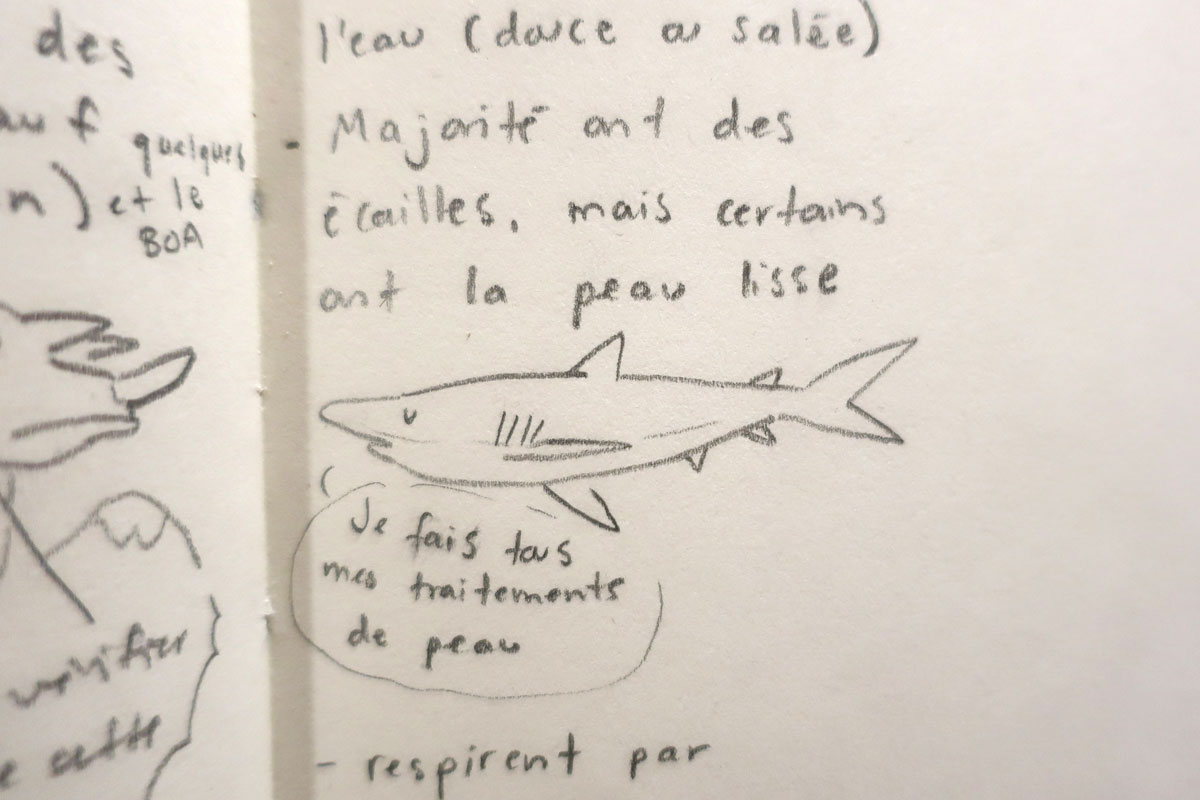 des
quelques
n) et le
BOA
vérifier
cette
l'eau (douce ou salée)
- Majorité ont des
écailles, mais certains
ont la peau lisse
Je fais tous
mes traitements
de peau
- respirent par